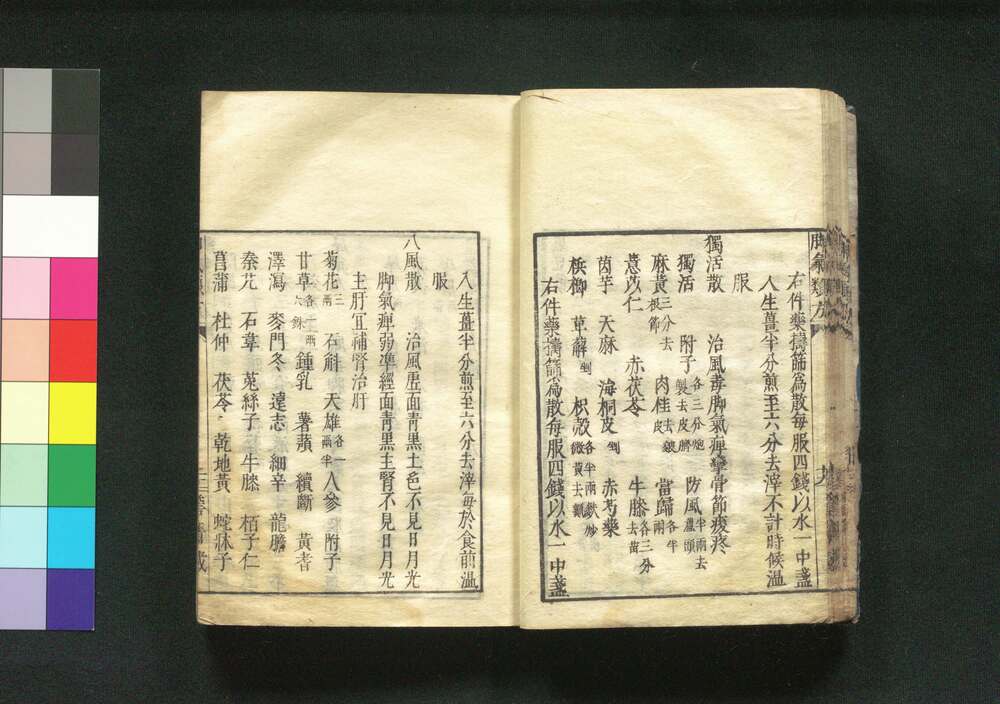 脚氣類方
右件藥擣篩爲散每服四錢以水一中盞
入生薑半分煎至六分去滓不計時候溫
服
獨活散 治風毒脚氣痺攣骨節痠疼
獨活 附子各三分炮製去皮臍 防風半兩去蘆頭
麻黄三分去根節 肉桂去皴皮 當歸各半兩
薏苡仁 赤茯苓 牛膝各三分去苗
茵芋 天麻 海桐皮剉 赤芍藥
檳榔 萆薢剉 枳殼各半兩麩炒微黄去瓤
右件藥擣篩爲散每服四錢以水一中盞
入生薑半分煎至六分去滓每於食前溫
服
八風散 治風虛面青黒土色不見日月光
脚氣痺弱準經面青黒主腎不見日月光
主肝冝補腎治肝
菊花三兩 石斛 天雄各一兩半 人參 附子
甘草各一兩六銖 鍾乳 薯蕷 續斷 黄耆
澤瀉 麥門冬 遠志 細辛 龍膽
秦艽 石韋 菟絲子 牛膝 栢子仁
菖蒲 杜仲 茯苓 乾地黄 蛇牀子